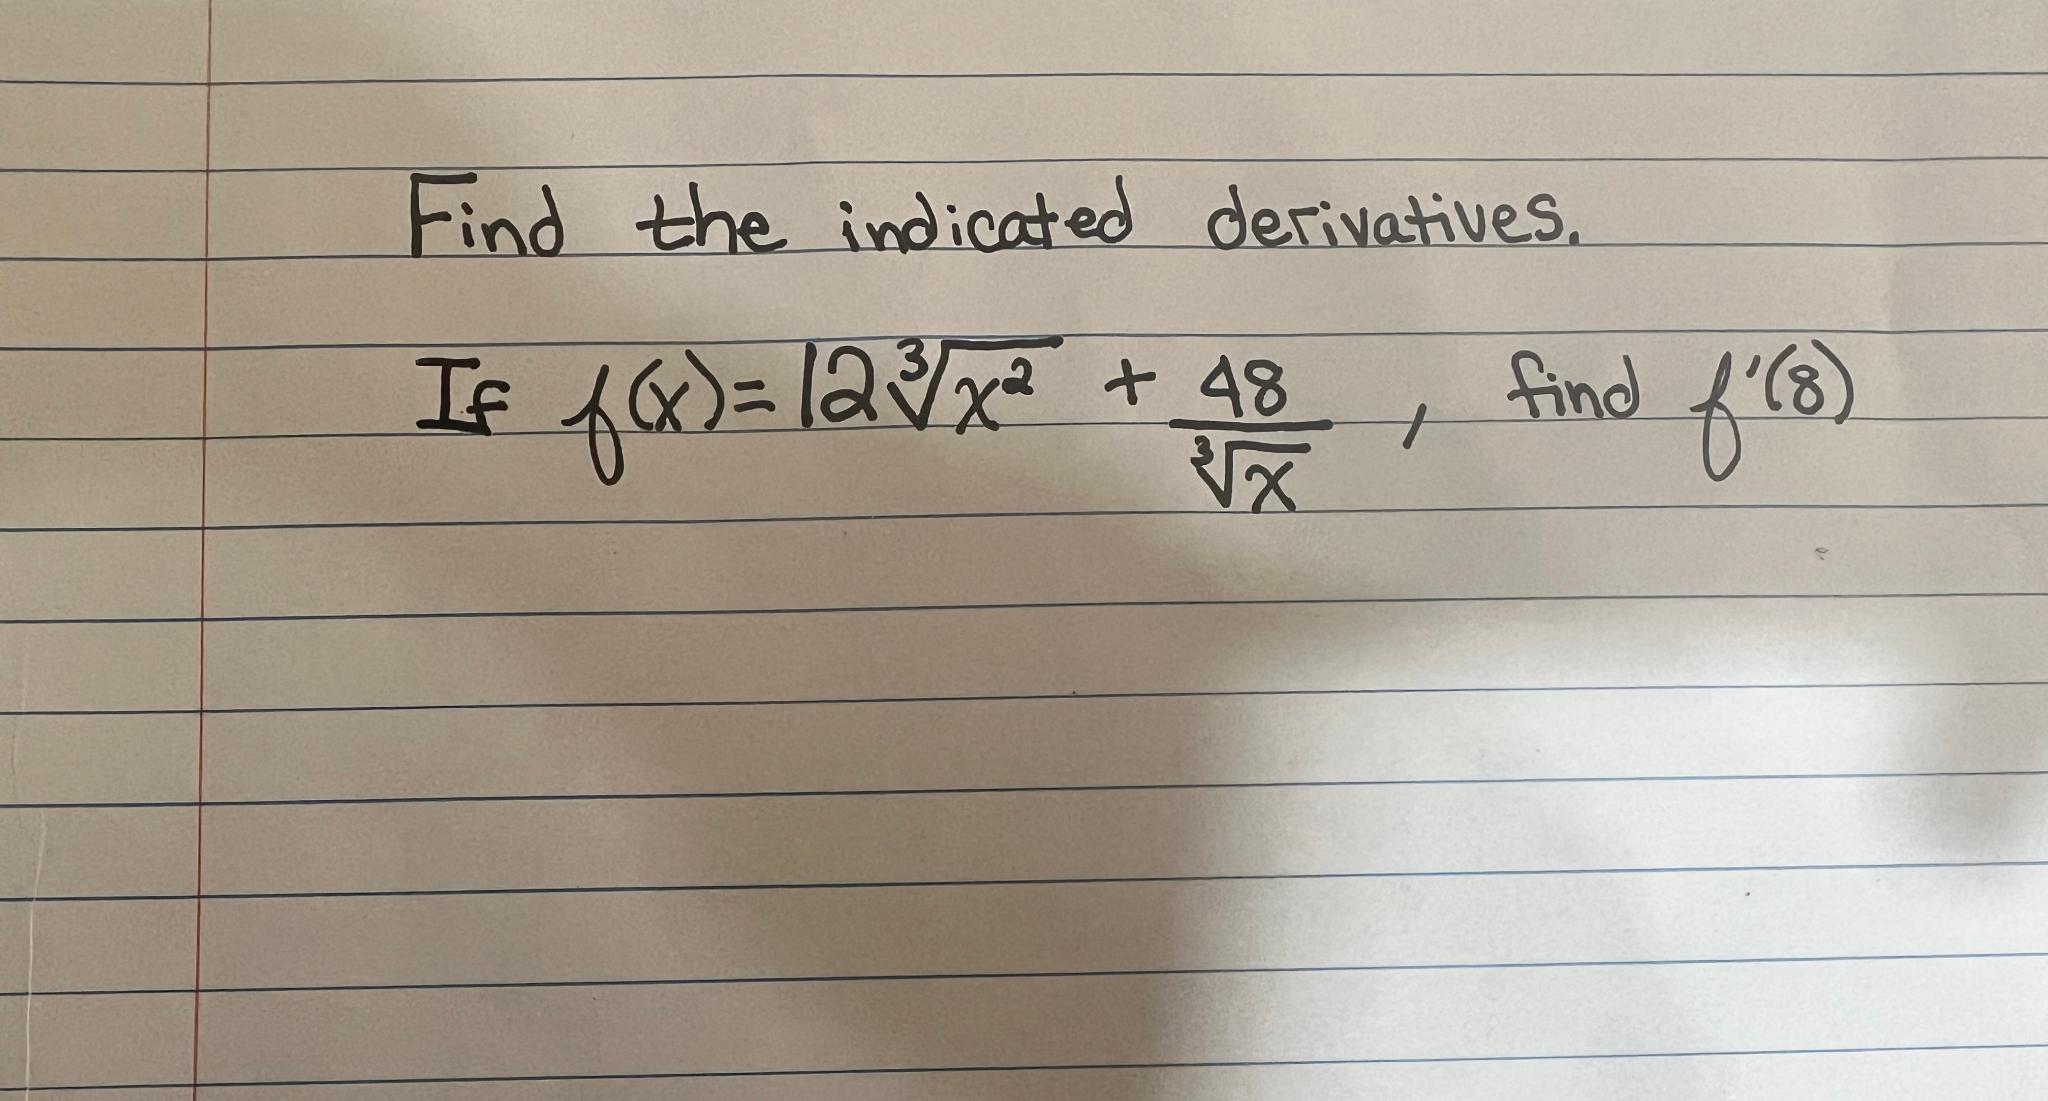 Find the indicated derivatives.
If f(x)=12∛x² + 48/∛x, find f'(8)